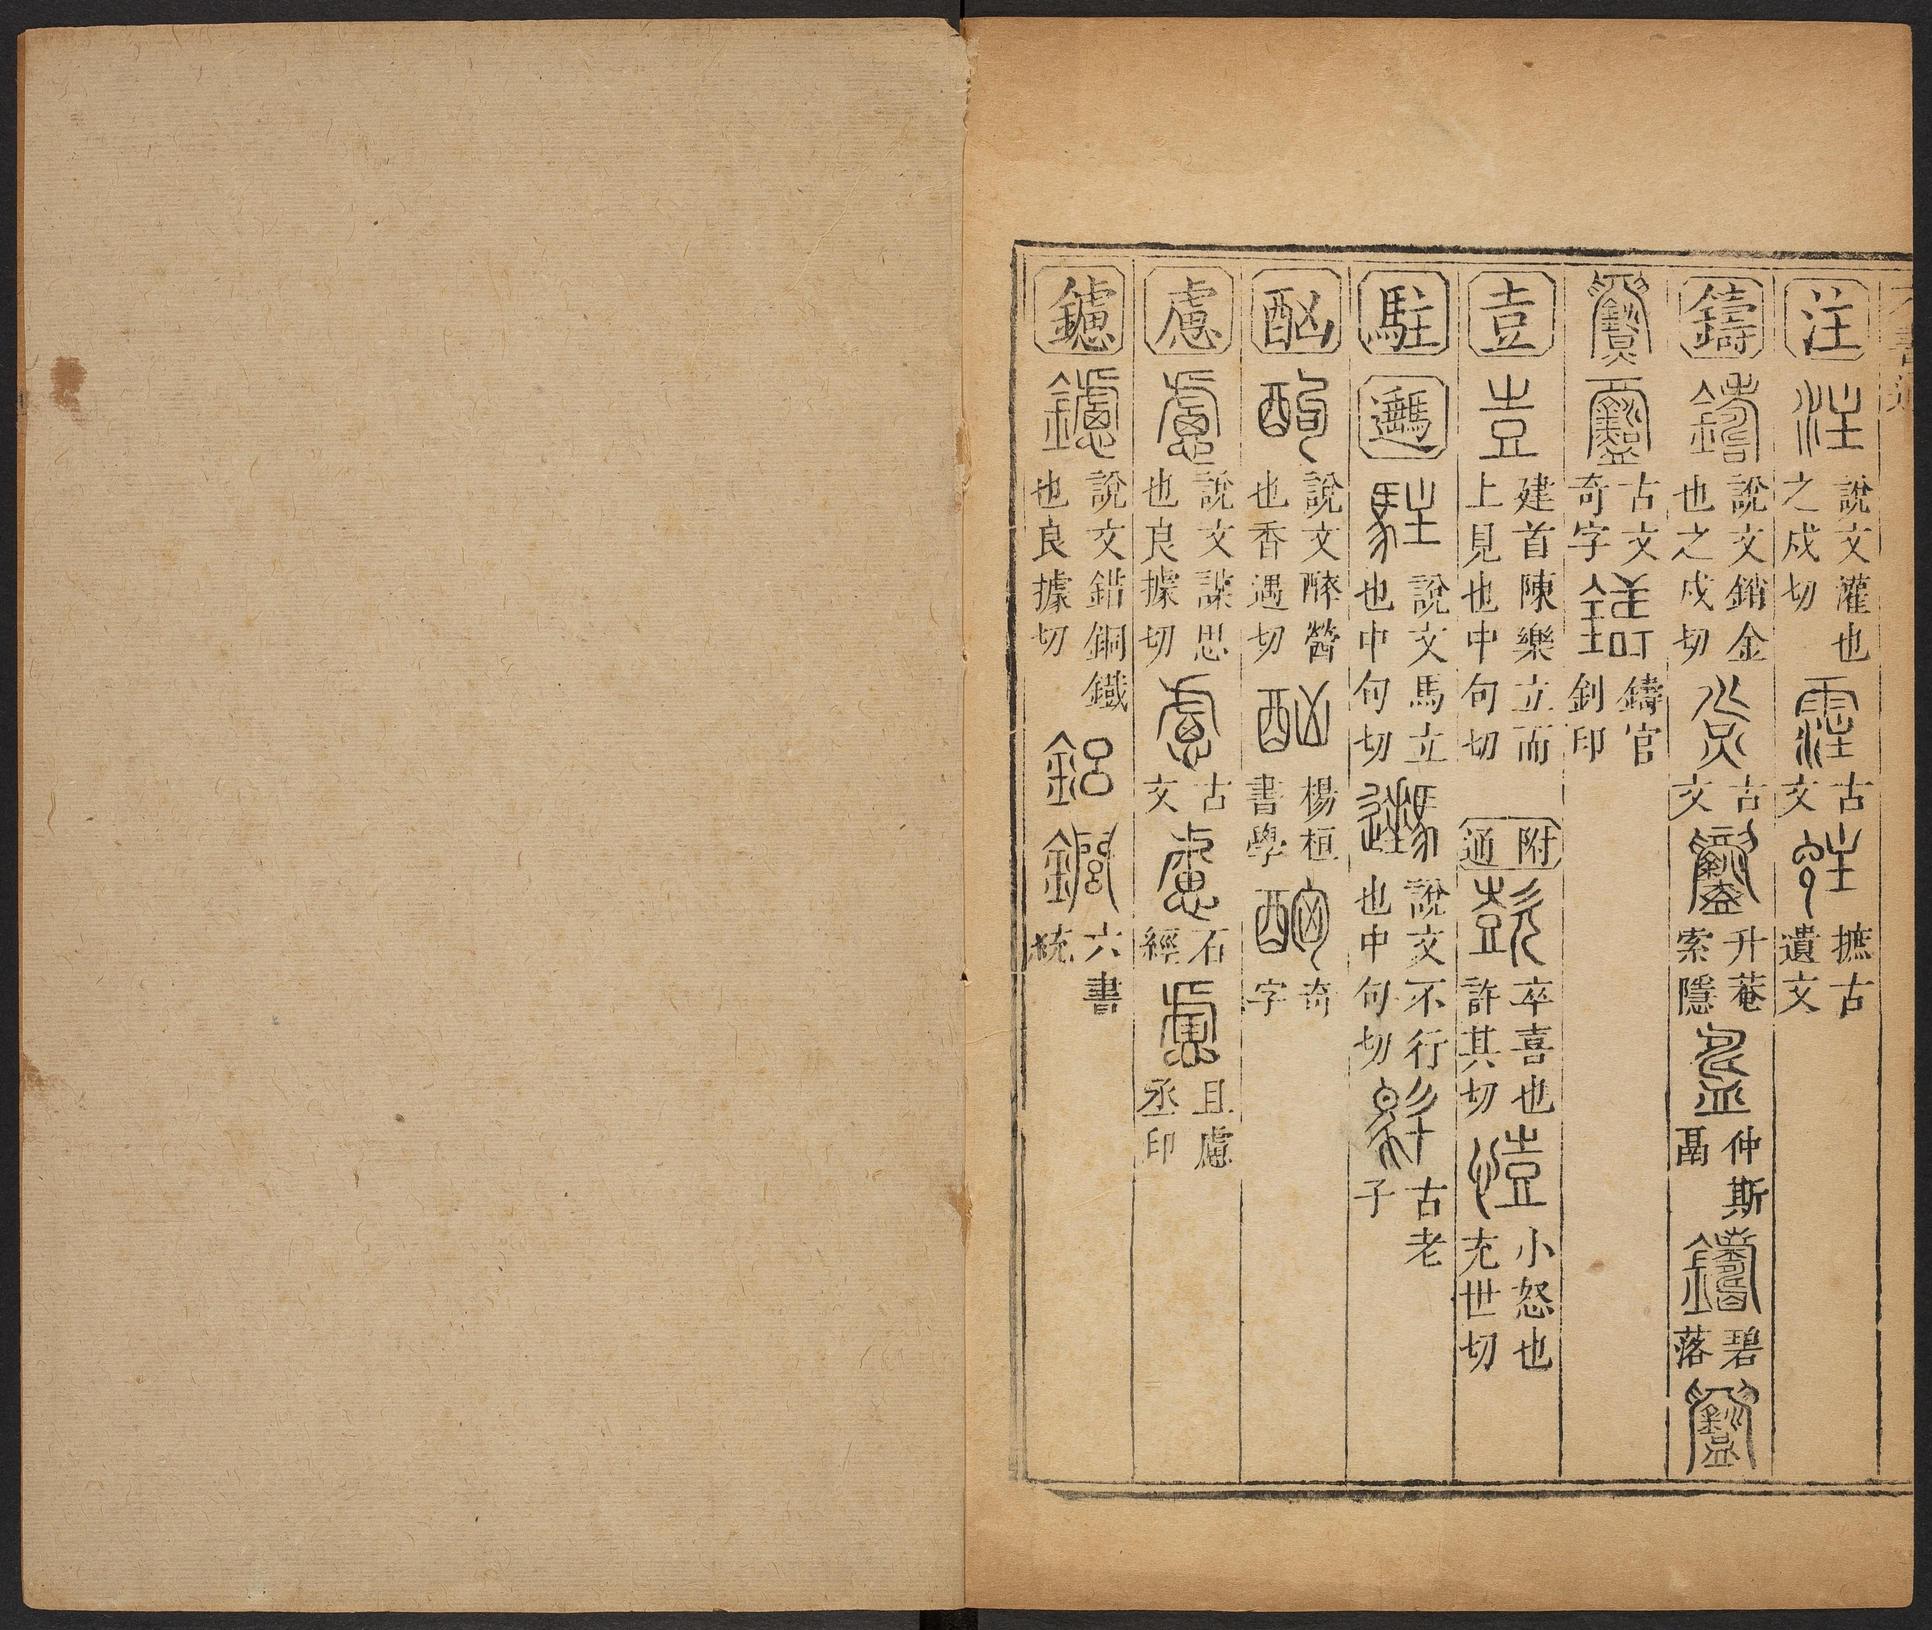 六書通
注 說文灌也之戍切 古文 摭古遺文
鑄 說文銷金也之戍切 古文 升菴索隱 仲斯鬲 碧落
古文奇字 鑄官釗印
壴 建首陳樂立而上見也中句切 附通 卒喜也許其切 小怒也充世切
駐 說文馬立也中句切 說文不行也中句切 古老子
酗 說文醉醟也香遇切 楊桓書學 奇字
慮 說文謀思也良據切 古文 石經 且慮丞印
鑢 說文錯銅鐵也良據切 六書統